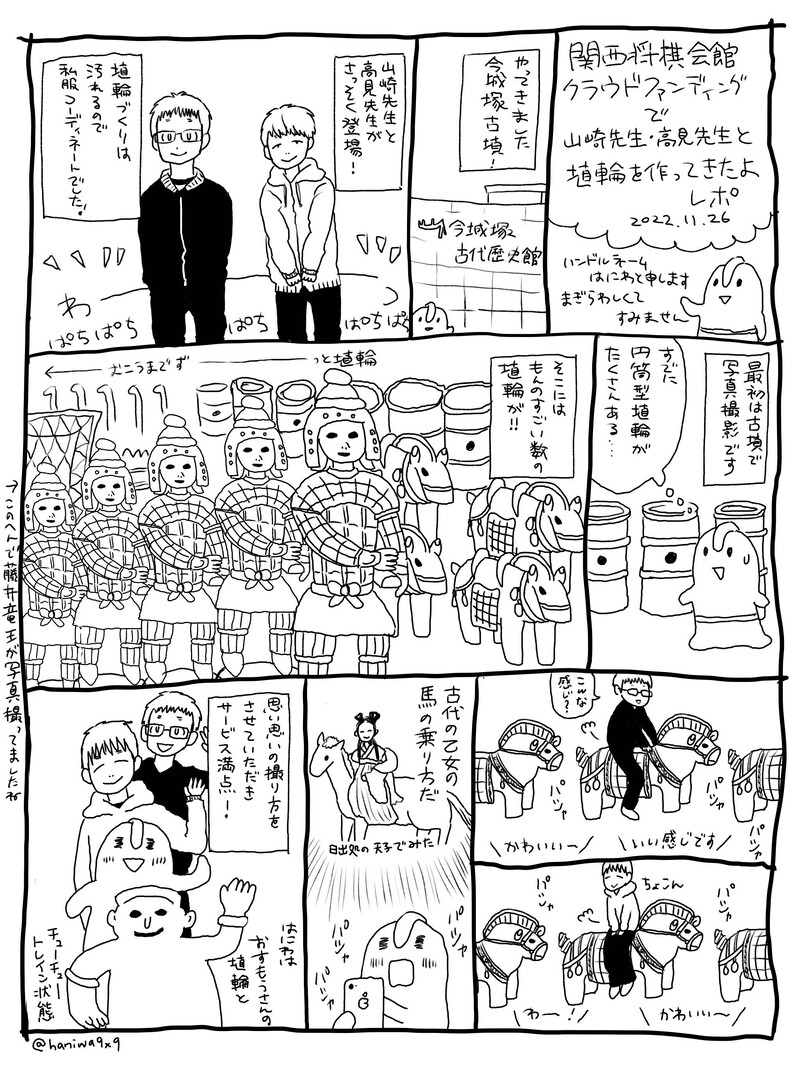 関西将棋会館
クラウドファンディング
で
山崎先生・高見先生と
埴輪を作ってきたよ
レポ
2022.11.26
ハンドルネーム
はにわと申します
まぎらわしくて
すみません
やってきました
今城塚古墳！
今城塚
古代歴史館
山崎先生と
高見先生が
さっそく登場！
埴輪づくりは
汚れるので
私服コーディネートでした！
わ
っ
ぱちぱち
ぱち
ぱちぱち
最初は古墳で
写真撮影です
すでに
円筒型埴輪が
たくさんある…
そこには
ものすごい数の
埴輪が!!
むこうまでず
っと埴輪
→このへんで藤井竜王が写真撮ってましたね
こんな
感じ？
パシャ
パシャ
パシャ
かわいいー
いい感じです
ちょこん
パシャ
パシャ
パシャ
わー！
かわいい〜
古代の乙女の
馬の乗り方だ
日出処の天子でみた
パシャ
パシャ
パシャ
思い思いの撮り方を
させていただき
サービス満点！
はにわは
おすもうさんの
埴輪と
チューチュー
トレイン状態
@haniwa9x9